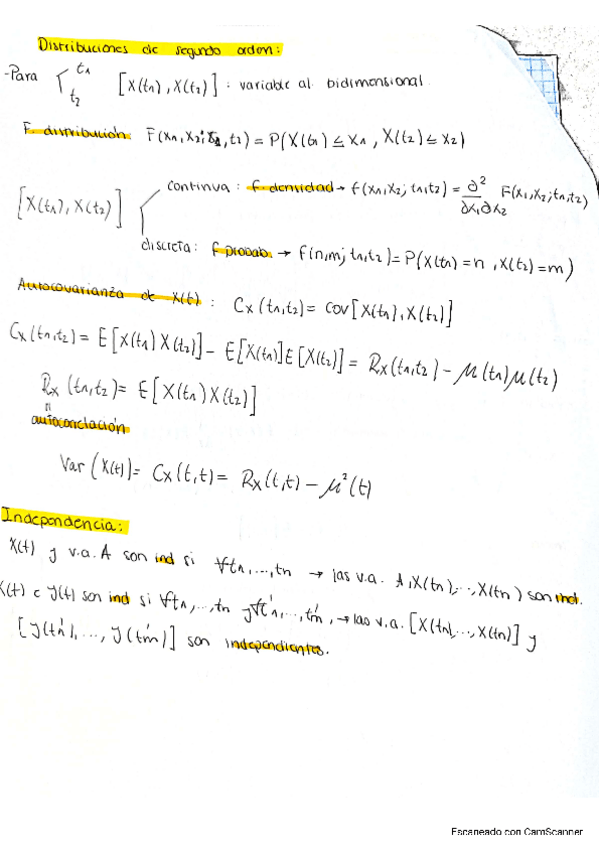 Distribuciones de segundo orden:
-Para t1 t2 [X(t1), X(t2)] : variable al. bidimensional
F. distribución: F(x1,x2; t1,t2) = P(X(t1) ≤ x1, X(t2) ≤ x2)
continua : f. densidad → f(x1,x2; t1,t2) = ∂²/∂x1∂x2 F(x1,x2; t1,t2)
[X(t1), X(t2)]
discreta: f probab. → f(n,m; t1,t2) = P(X(t1) = n, X(t2) = m)
Autocovarianza de X(t) : Cx(t1,t2) = COV[X(t1), X(t2)]
Cx(t1,t2) = E[X(t1) X(t2)] - E[X(t1)] E[X(t2)] = Rx(t1,t2) - μ(t1)μ(t2)
Rx(t1,t2) = E[X(t1) X(t2)]
autocorrelación
Var(X(t)) = Cx(t,t) = Rx(t,t) - μ²(t)
Independencia:
X(t) y v.a. A son ind si ∀t1,...,tn → las v.a. A, X(t1),..., X(tn) son ind.
X(t) e Y(t) son ind si ∀t1,...,tn y ∀t'1,...,t'm, → las v.a. [X(t1),..., X(tn)] y
[Y(t'1),..., Y(t'm)] son independientes.
Escaneado con CamScanner